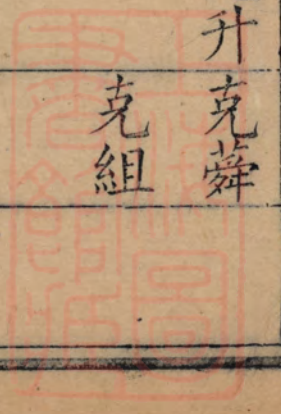 升 克蕣
克組